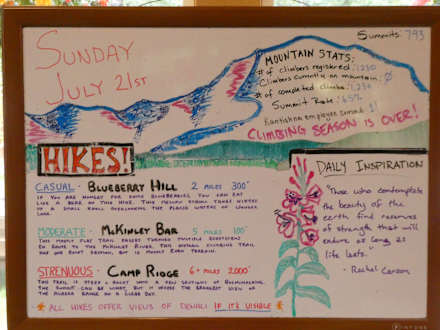 Summits: 793
SUNDAY
JULY 21ST
MOUNTAIN STATS:
# of climbers registered: 1,230
Climbers currently on mountain: Ø
# of completed climbs: 1,230
Summit Rate: 65%
Kantishna employee summits: 1!
CLIMBING SEASON IS OVER!
HIKES!
CASUAL - BLUEBERRY HILL 2 MILES 300'
IF YOU ARE HUNGRY FOR SOME BLUEBERRIES, YOU CAN EAT
LIKE A BEAR ON THIS HIKE. THIS MELLOW STROLL TAKES
TO A SMALL KNOLL OVERLOOKING THE PLACID WATERS OF WONDER
LAKE.
MODERATE - MCKINLEY BAR 5 MILES 100'
THIS MOSTLY FLAT TRAIL PASSES THROUGH MULTIPLE ECOSYSTEMS
EN ROUTE TO THE MCKINLEY RIVER. THIS TRAIL
HAS ONE ROOT SECTION, BUT IS MOSTLY EVEN TERRAIN.
STRENUOUS - CAMP RIDGE 6+ MILES 2,000'
THIS TRAIL IS STEEP & ROCKY WITH A FEW SECTIONS OF BUSHWHACKING.
THE SUMMIT CAN BE WINDY, BUT IT OFFERS THE GRANDEST VIEW OF
THE ALASKA RANGE ON A CLEAR DAY.
* ALL HIKES OFFER VIEWS OF DENALI IF IT'S VISIBLE *
DAILY INSPIRATION
"Those who contemplate
the beauty of the
earth find reserves
of strength that will
endure as long as
life lasts."
- Rachel Carson